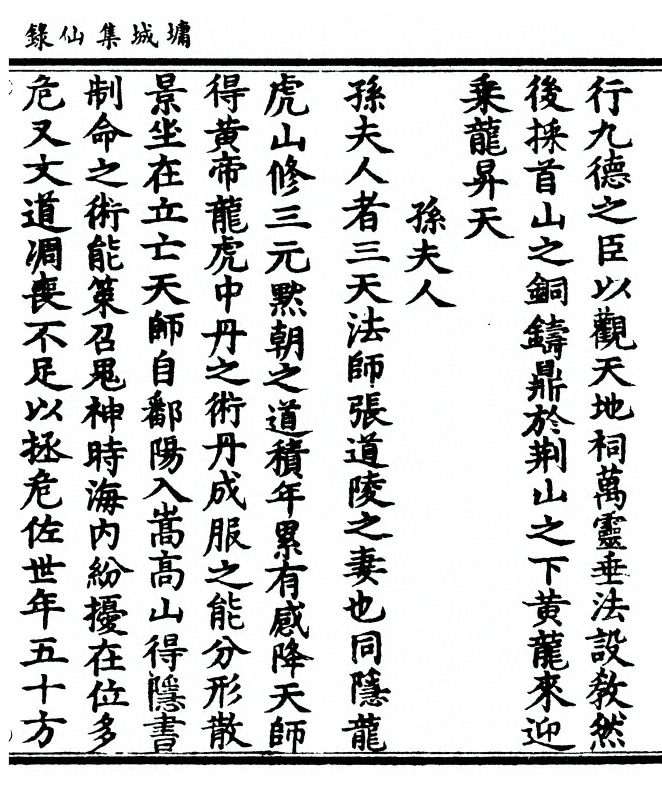 墉城集仙錄
行九德之臣以觀天地祠萬靈垂法設敎然
後採首山之銅鑄鼎於荆山之下黄龍來迎
乗龍昇天
孫夫人
孫夫人者三天法師張道陵之妻也同隱龍
虎山修三元黙朝之道積年累有感降天師
得黄帝龍虎中丹之術丹成服之能分形散
景坐在立亡天師自鄱陽入嵩高山得隱書
制命之術能策召鬼神時海内紛擾在位多
危又文道凋喪不足以拯危佐世年五十方